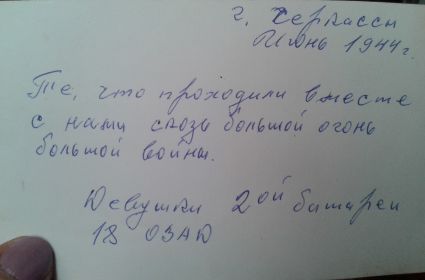 г. Черкассы
Июнь 1944 г.
Те, что проходили вместе
с нами сквозь большой огонь
большой войны.
Девушки 2ой батареи
18 ОЗАД